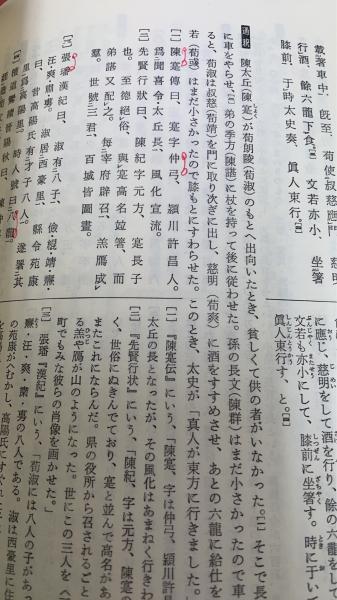 載著車中。既至、荀使叔慈應門
行酒、餘六龍下食。[三] 文若亦小、坐箸
膝前。于時太史奏、眞人東行。[四]
に應じ、慈明をして酒を行り、餘の六
文若も亦小にして、膝前に坐箸す。時に于いて
眞人東行す、と。[四]
通釈 陳太丘(陳寔)が荀朗陵(荀淑)のもとへ出向いたとき、貧しくて供の者がいなかった。[一] そこで長
に車をやらせ、[二] 弟の季方(陳諶)に杖を持って後に従わせた。孫の長文(陳羣)はまだ小さかったので車
ると、荀淑は叔慈(荀靖)を門に取り次ぎに出し、慈明(荀爽)に酒をすすめさせ、あとの六龍に給仕を
若(荀彧)はまだ小さかったので膝もとにすわらせた。このとき、太史が「真人が東方に行きました。
[一] 陳寔傳曰、寔字仲弓、潁川許昌人。
爲聞喜令・太丘長、風化宣流。
[二] 先賢行狀曰、陳紀字元方、寔長子
也。至德絕俗、與寔高名竝箸、而
弟諶又配之。每宰府辟召、羔鴈成
羣。世號三君、百城皆圖畫。
[三] 張璠漢紀曰、淑有八子、儉緄靖燾・
汪・爽・肅・旉。淑居西豪里、縣令苑康
曰、昔高陽氏有才子八人、遂署其
里爲高陽里。時人號曰八龍。
[四] 檀道鸞續晉陽秋曰、陳仲
[一] 『陳寔伝』にいう、「陳寔、字は仲弓、潁川許昌
太丘の長となったが、その風化はあまねく行きわ
[二] 『先賢行状』にいう、「陳紀、字は元方、陳寔の
く、世俗にぬきんでており、寔と並んで高名があ
またこれにならんだ。県の役所から召されるごと
る羔や鴈が山のようになった。世にこの三人を〈
町でもみな彼らの肖像を画かせた。」
[三] 張璠『漢紀』にいう、「荀淑には八人の子があっ
燾・汪・爽・肅・旉の八人である。淑は西豪里に住
の苑康がへむかし、高陽氏にすぐれた